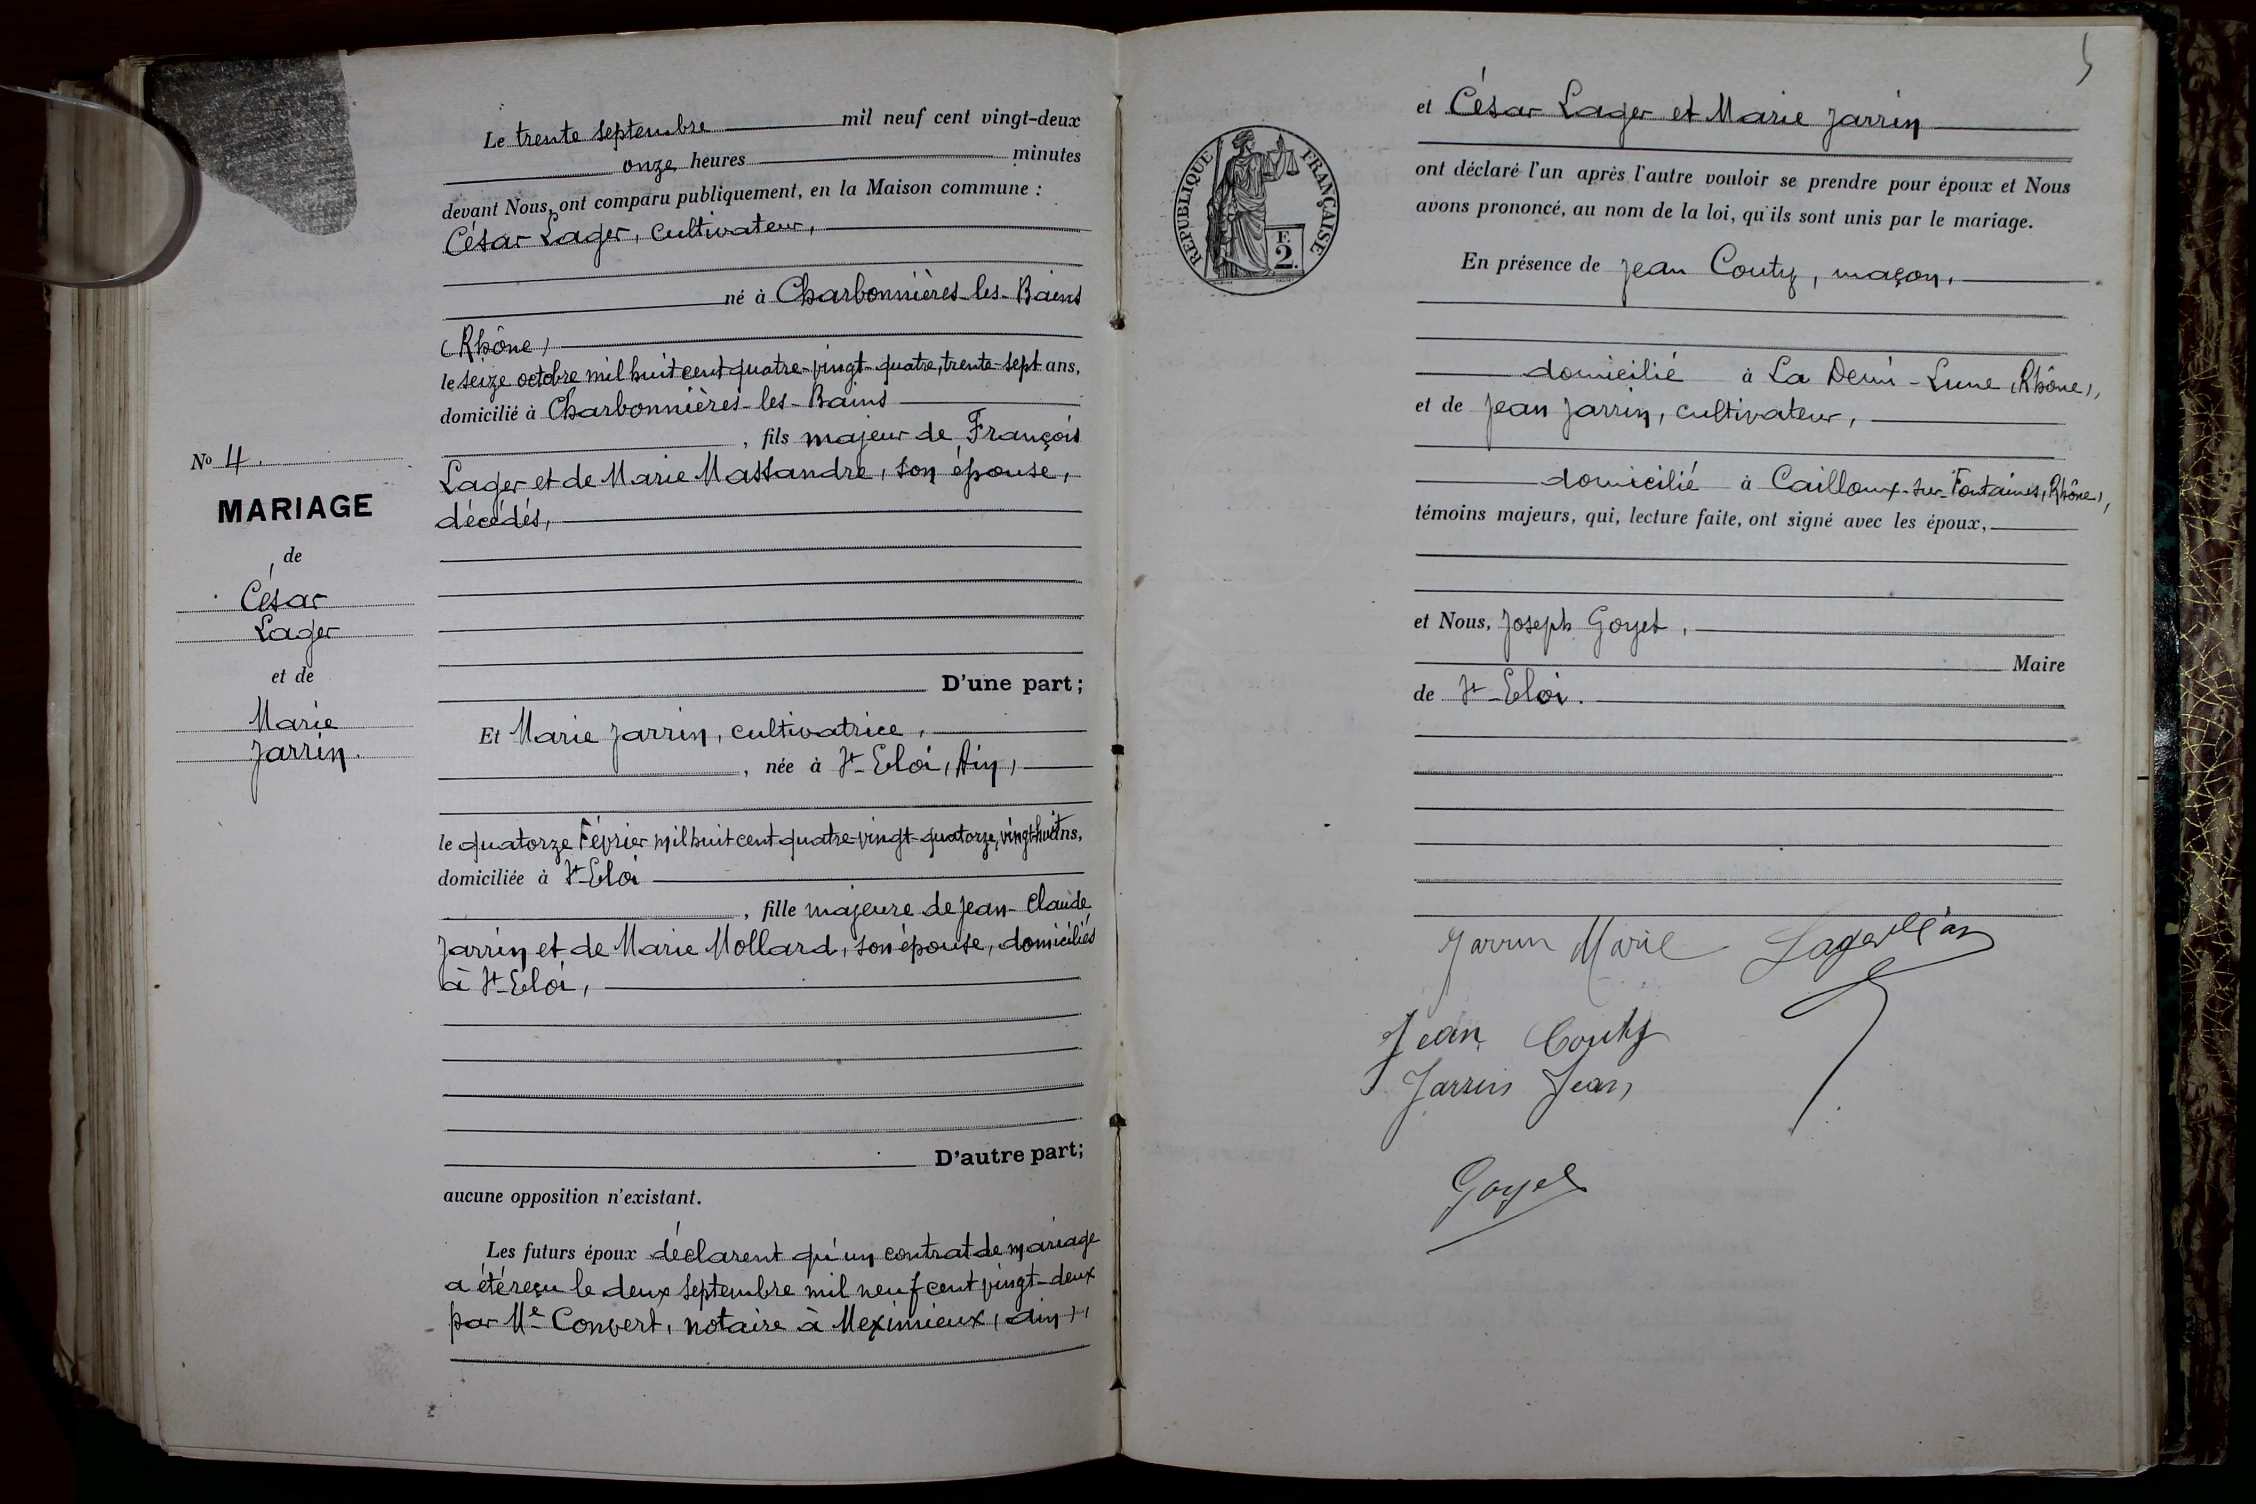 Le trente septembre mil neuf cent vingt-deux
onze heures minutes
devant Nous, ont comparu publiquement, en la Maison commune :
César Lager, cultivateur,
né à Charbonnières-les-Bains
(Rhône)
le seize octobre mil huit cent quatre-vingt-quatre, trente-sept ans,
domicilié à Charbonnières-les-Bains
, fils majeur de François
Lager et de Marie Massandre, son épouse,
décédés,
No 4.
MARIAGE
de
César
Lager
et de
Marie
Jarrin.
D'une part;
Et Marie Jarrin, cultivatrice,
, née à St-Eloi, (Ain)
le quatorze Février mil huit cent quatre-vingt-quatorze, vingt-huit ans,
domiciliée à St-Eloi
, fille majeure de Jean-Claude
Jarrin et de Marie Mollard, son épouse, domiciliés
à St-Eloi,
D'autre part;
aucune opposition n'existant.
Les futurs époux déclarent qu'un contrat de mariage
a été reçu le deux septembre mil neuf cent vingt-deux
par Me Convert, notaire à Meximieux, (Ain),
5
RÉPUBLIQUE FRANÇAISE
F.
2.
et César Lager et Marie Jarrin
ont déclaré l'un après l'autre vouloir se prendre pour époux et Nous
avons prononcé, au nom de la loi, qu'ils sont unis par le mariage.
En présence de Jean Couty, maçon,
domicilié à La Demi-Lune (Rhône),
et de Jean Jarrin, cultivateur,
domicilié à Cailloux-sur-Fontaines, (Rhône),
témoins majeurs, qui, lecture faite, ont signé avec les époux,
et Nous, Joseph Goyet,
Maire
de St-Eloi.
Jarrin Marie Lager César
Jean Couty
Jarrin Jean
Goyet